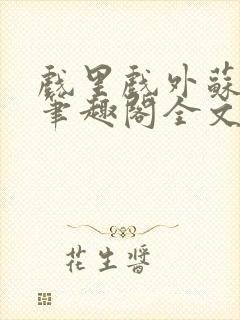 戲里戲外蘇
筆趣閣全文
花生醬